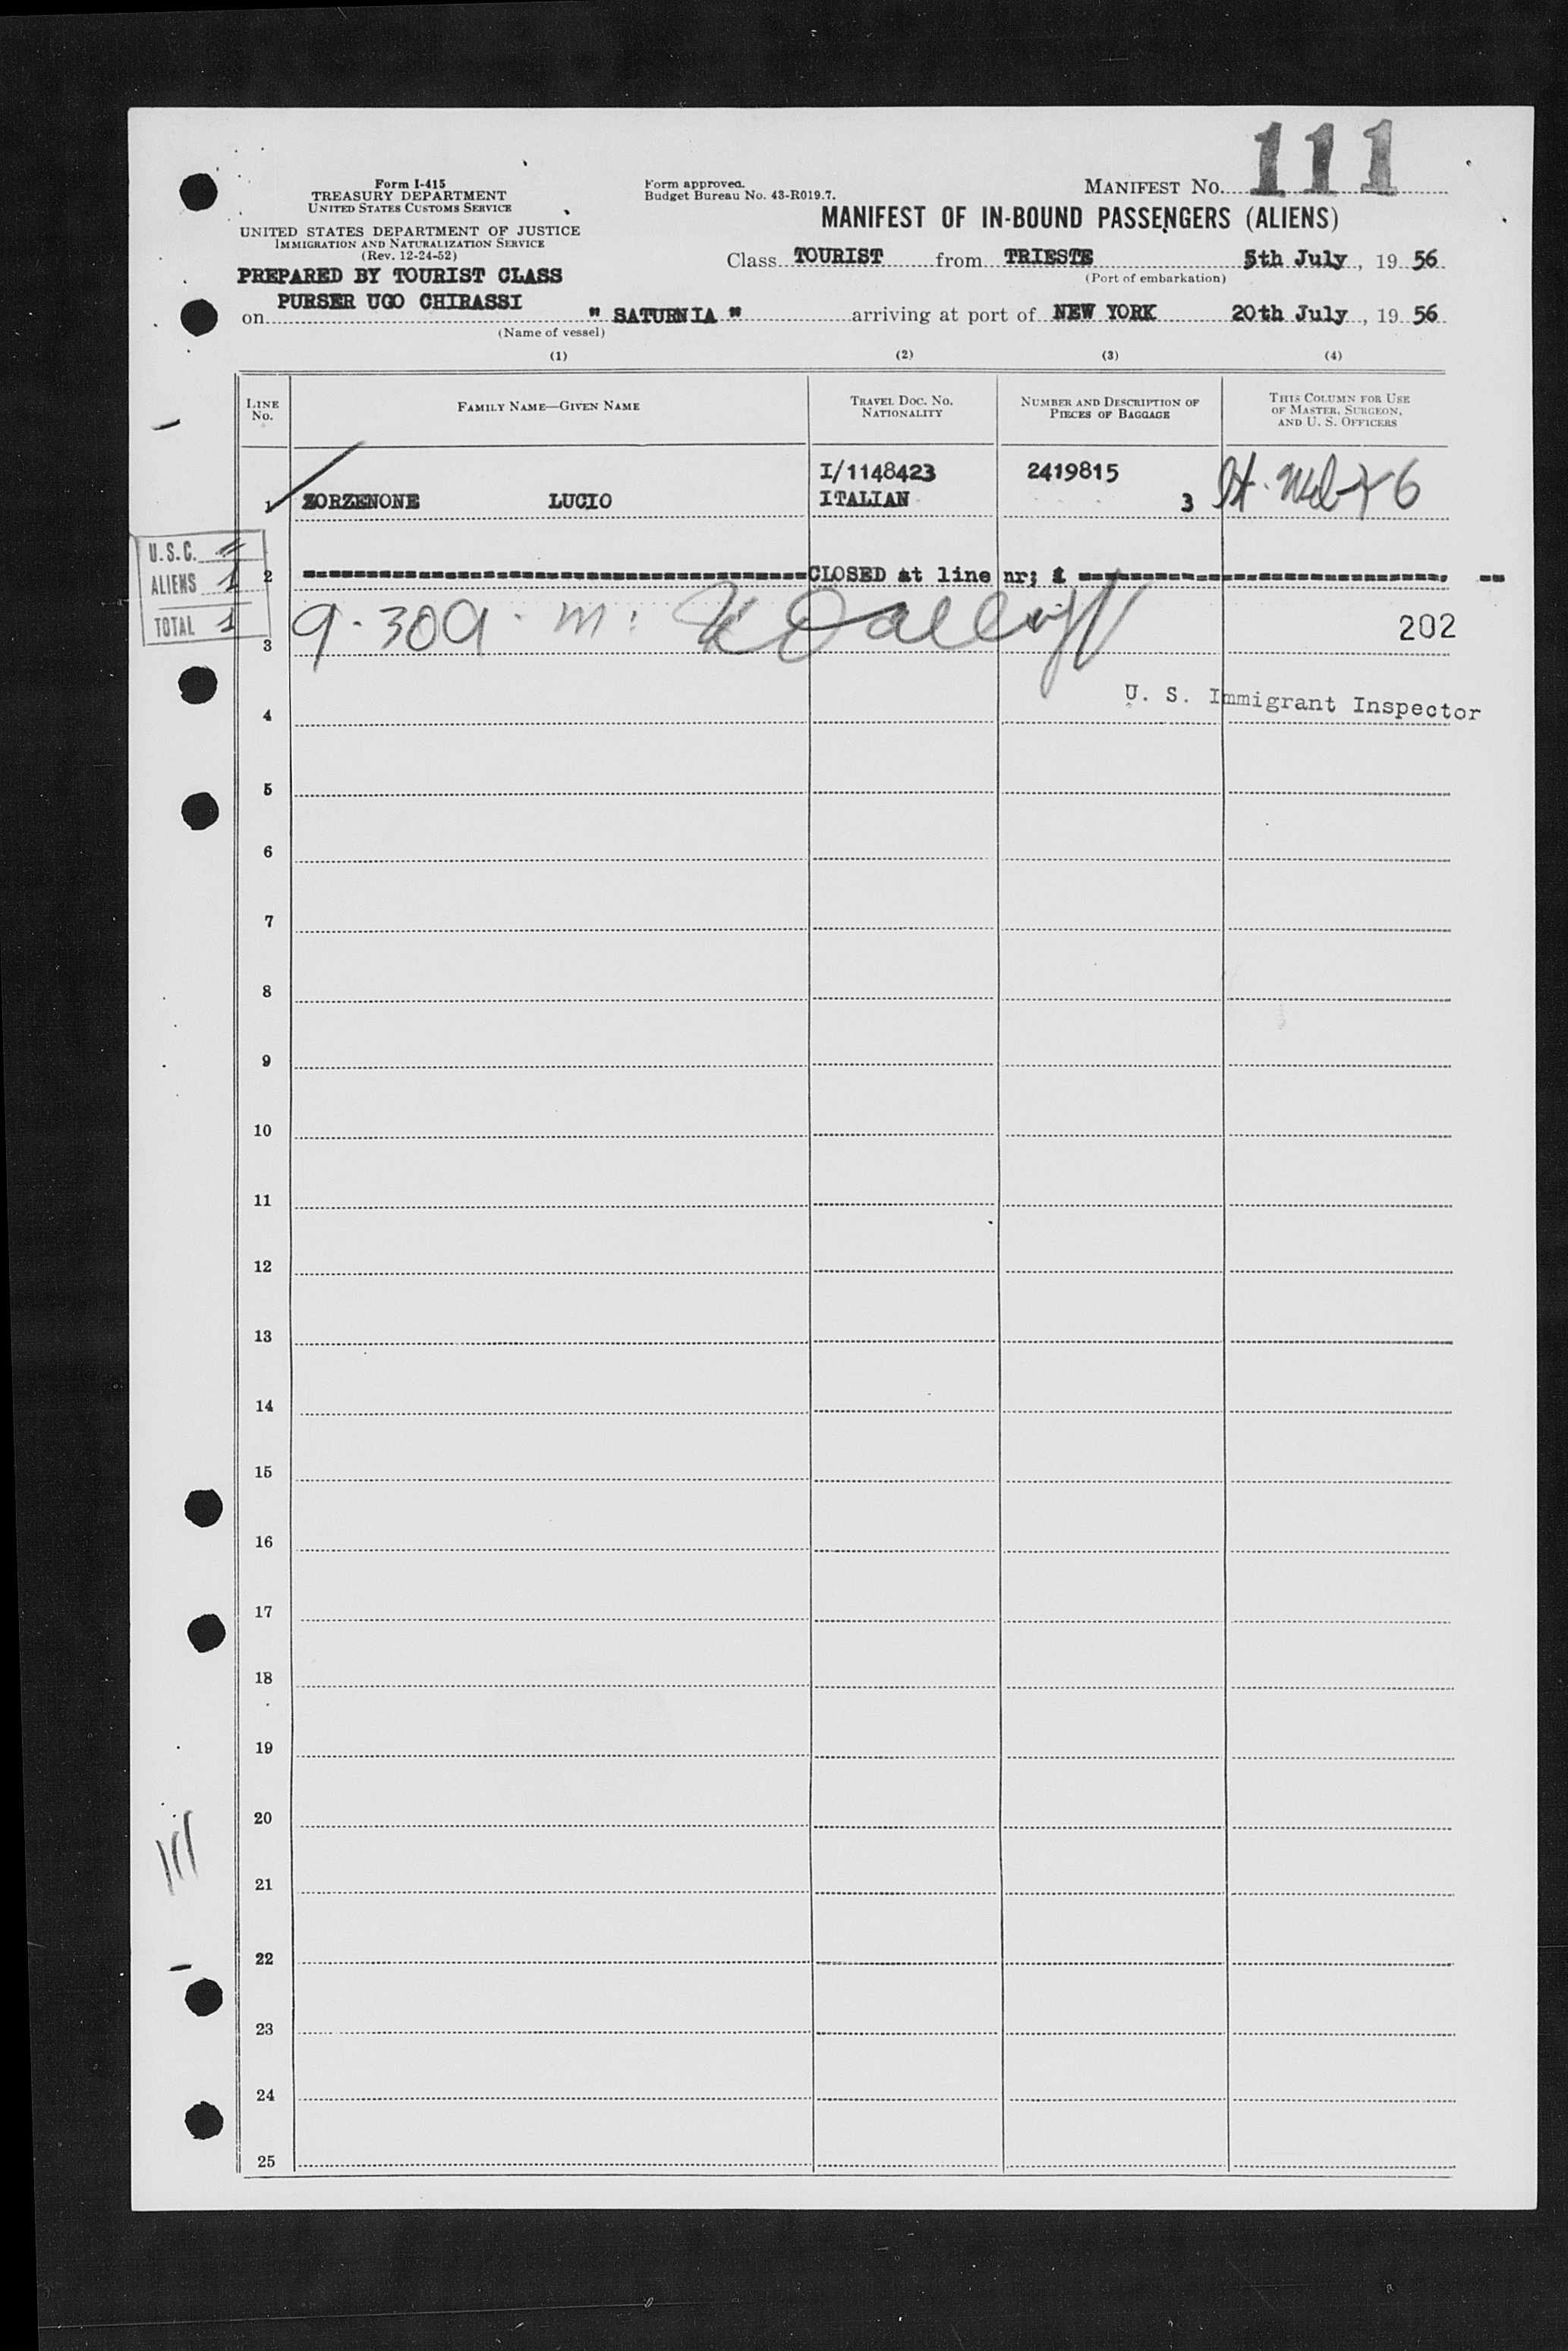 111
Form I-415
TREASURY DEPARTMENT
UNITED STATES CUSTOMS SERVICE
UNITED STATES DEPARTMENT OF JUSTICE
IMMIGRATION AND NATURALIZATION SERVICE
(Rev. 12-24-52)
PREPARED BY TOURIST CLASS
PURSER UGO CHIRASSI
Form approved.
Budget Bureau No. 43-R019.7.
MANIFEST NO.
MANIFEST OF IN-BOUND PASSENGERS (ALIENS)
Class TOURIST from TRIESTE 5th July, 19 56
(Port of embarkation)
on " SATURNIA " arriving at port of NEW YORK 20th July, 19 56
(Name of vessel)
(1) (2) (3) (4)
LINE No.
FAMILY NAME—GIVEN NAME
TRAVEL DOC. NO. NATIONALITY
NUMBER AND DESCRIPTION OF PIECES OF BAGGAGE
THIS COLUMN FOR USE OF MASTER, SURGEON, AND U. S. OFFICERS
I/1148423 2419815
1 ZORZENONE LUCIO ITALIAN 3
U.S.C.
ALIENS 1
TOTAL 1
2 CLOSED at line nr; 1
3 9.30 a.m. 202
U. S. Immigrant Inspector
4
5
6
7
8
9
10
11
12
13
14
15
16
17
18
19
20
111
21
22
23
24
25